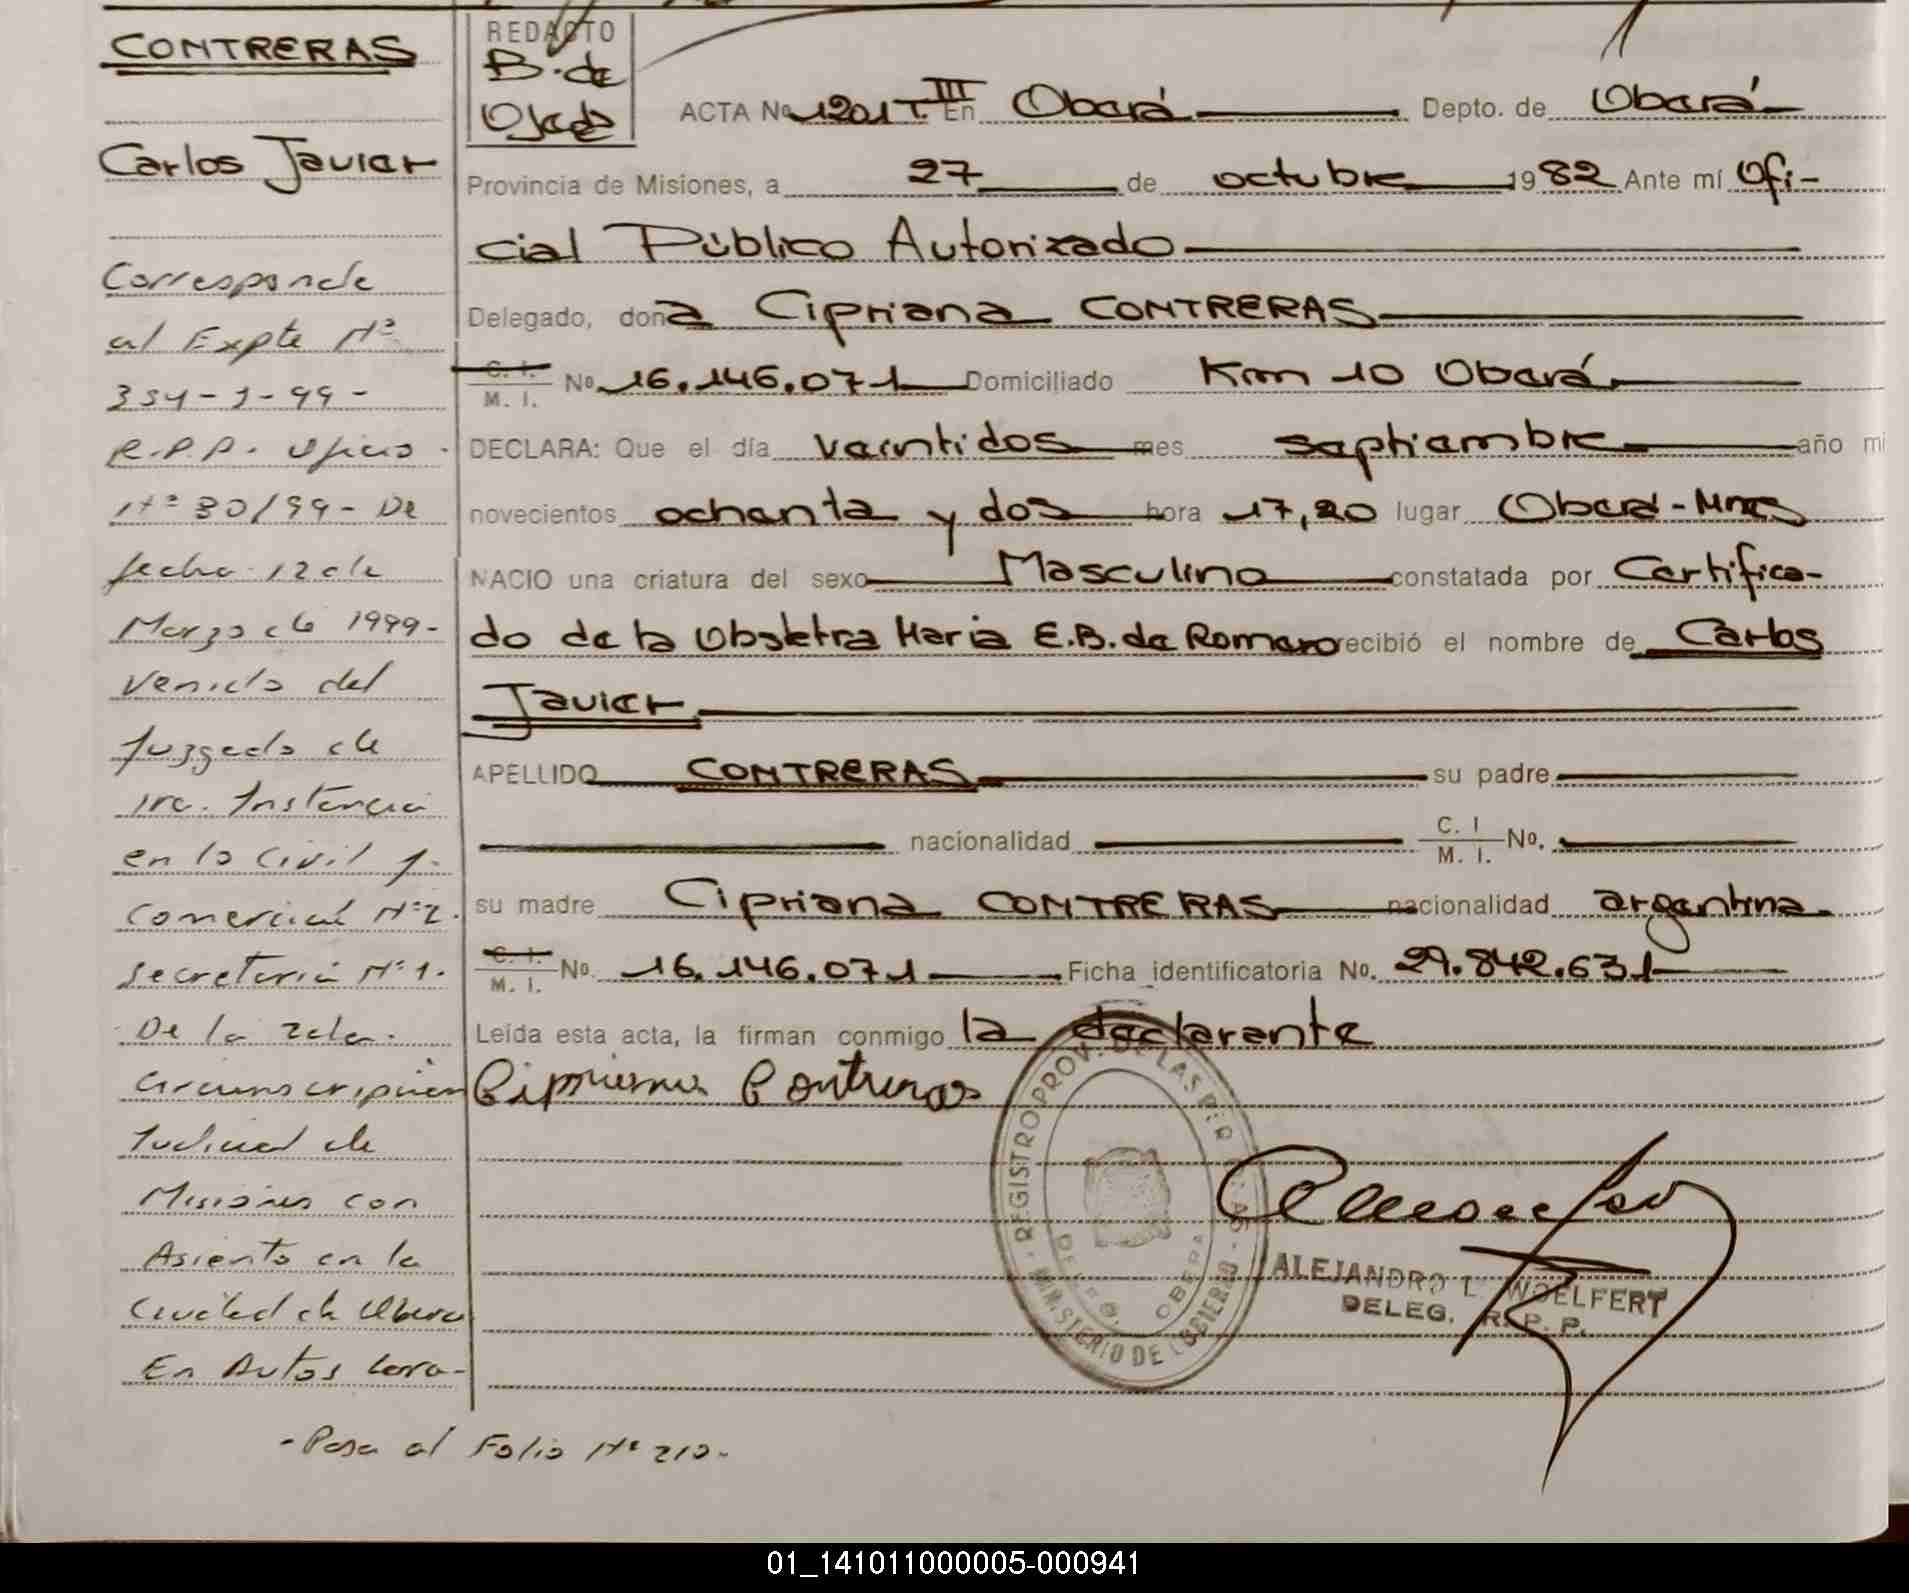 CONTRERAS
Carlos Javier
Corresponde
al Expte Nº
354-J-99-
R.P.P. Oficio
Nº 30/99- De
fecha 12 de
Marzo de 1999-
Venido del
Juzgado de
1ra. Instancia
en lo Civil y
Comercial Nº2.
Secretaria Nº1.
De la 2da.
Circunscripción
Judicial de
Misiones con
Asiento en la
Ciudad de Obera
En Autos Cara-
REDACTO
B. de
Ojeda
ACTA No 1201 T. III En Oberá Depto. de Oberá
Provincia de Misiones, a 27 de octubre 1982 Ante mí Ofi-
cial Público Autorizado
Delegado, dona Cipriana CONTRERAS
C. I. M. I. No 16.146.071 Domiciliado Km 10 Oberá
DECLARA: Que el día veintidos mes septiembre año mi
novecientos ochenta y dos hora 17,20 lugar Oberá-Mnes
NACIO una criatura del sexo Masculino constatada por Certifica-
do de la Obstetra Maria E.B. de Romero recibió el nombre de Carlos
Javier
APELLIDO CONTRERAS su padre
nacionalidad C. I M. I. No.
su madre Cipriana CONTRERAS nacionalidad argentina
C. I. M. I. No. 16.146.071 Ficha identificatoria No. 29.842.631
Leída esta acta, la firman conmigo la declarante
Cipriana Contreras
REGISTRO PROV. DE LAS PERSONAS
MINISTERIO DE GOBIERNO
OBERA
ALEJANDRO L. WOELFERT
DELEG. R. P. P.
-Pasa al Folio Nº 210-
01_141011000005-000941